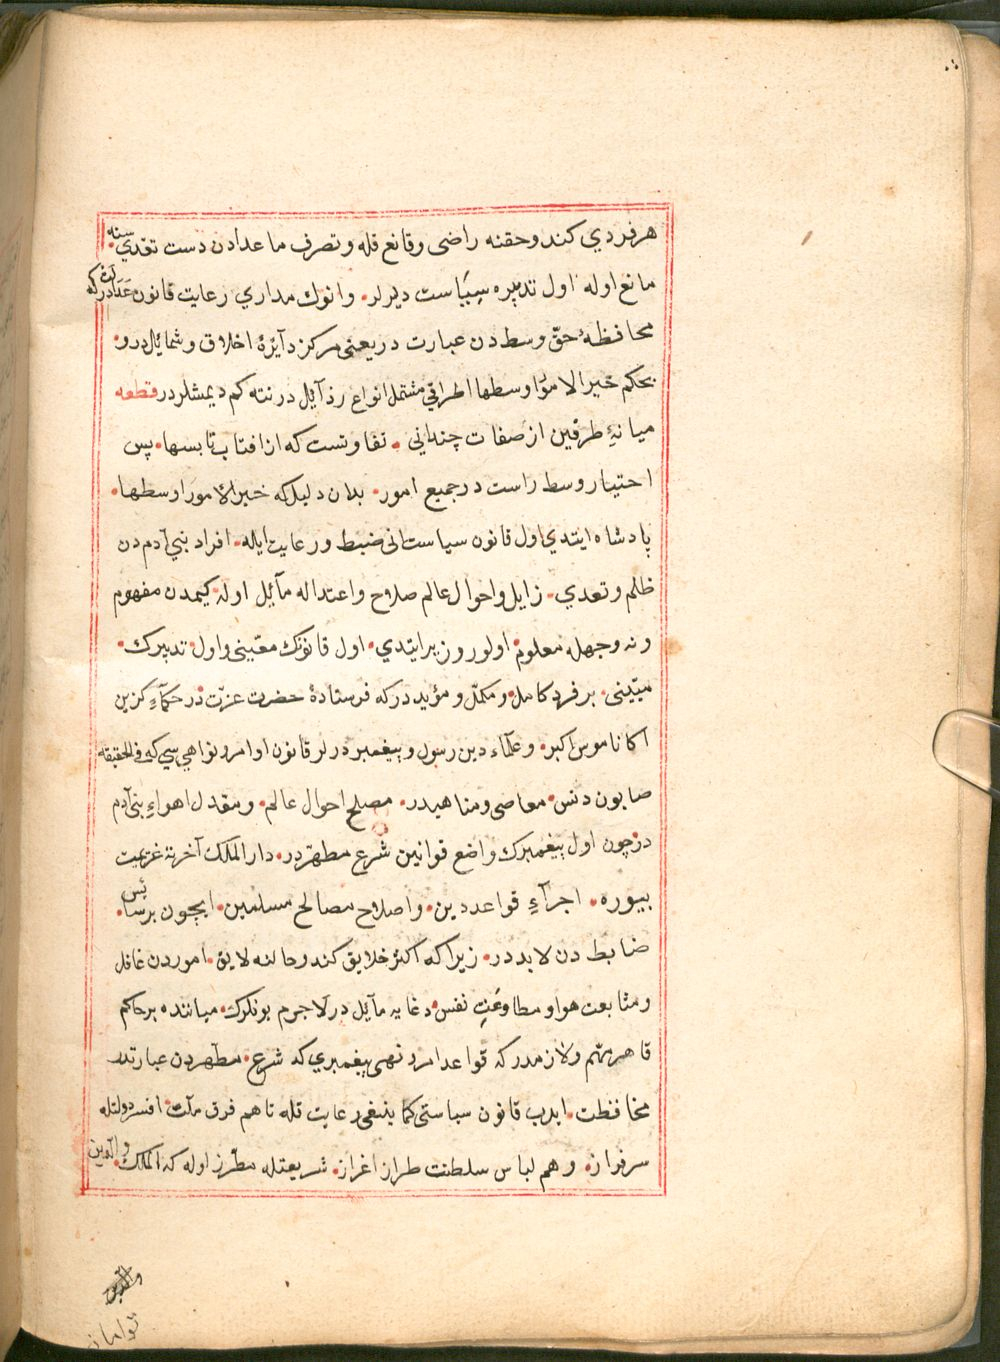 هر فردي كندو حقنه راضى وقانع قله وتصرف ما عدادن دست تعدي سنه
مانع اوله اول تدبيره سياست ديرلر. وانوك مداري رعايت قانون عدالتدركه
محافظۀ حقّ وسطدن عبارت در يعنى مركز دآئرۀ اخلاق وشمائل در و.
بحكم خير الامور اوسطها اطرافي مشتمل انواع رذآئل در نته كم ديمشلردر قطعه
ميانۀ طرفين از صفات چندانى . تفاوتست كه از افتاب تا بسها. پس
اختيار وسط راست در جميع امور. بدان دليل كه خير الامور اوسطها.
پادشاه ايتدي اول قانون سياستى ضبط ورعايت ايله. افراد بنى آدم دن
ظلم وتعدي. زايل واحوال عالم صلاح واعتداله مآئل اوله. كيمدن مفهوم
ونه وجهله معلوم اولور وزير ايتدي. اول قانونك معيّنى واول تدبيرك.
مبيّنى. بر فرد كامل. ومكمّل ومؤيد در كه فرستادۀ حضرت عزّت در حكمآءِ گزين
اكا ناموس اكبر. وعلمآء دين رسول وپيغمبر ديرلر قانون اوامر ونواهي سي كه فى الحقيقه
صابون دنس معاصى ومناهيدر. مصلح احوال عالم. ومعدل اهواءِ بنى آدم
در چون اول پيغمبرك واضع قوانين شرع مطهردر. دار الملك آخرته عزيمت
بيوره. اجرآءِ قواعد دين. واصلاح مصالح مسلمين. ايچون بر سائس.
ضابط دن لابد در. زيرا كه اكثر خلايق كندو حالنه لايق. اموردن غافل
ومتابعت هوا ومطاوعت نفس دغايه مآئل در لاجرم بونلرك ميانده بر حاكم
قاهر مهّم ولازمدر كه قواعد امر ونهى پيغمبري كه شرع. مطهردن عبارتدر
محافظت. ايدب قانون سياستى كما ينبغى رعايت قله تا هم فرق ملت افسر دولتله
سرفراز. وهم لباس سلطنت طراز اعزاز. شريعتله مطرّز اوله كه الملك والدين
توامان